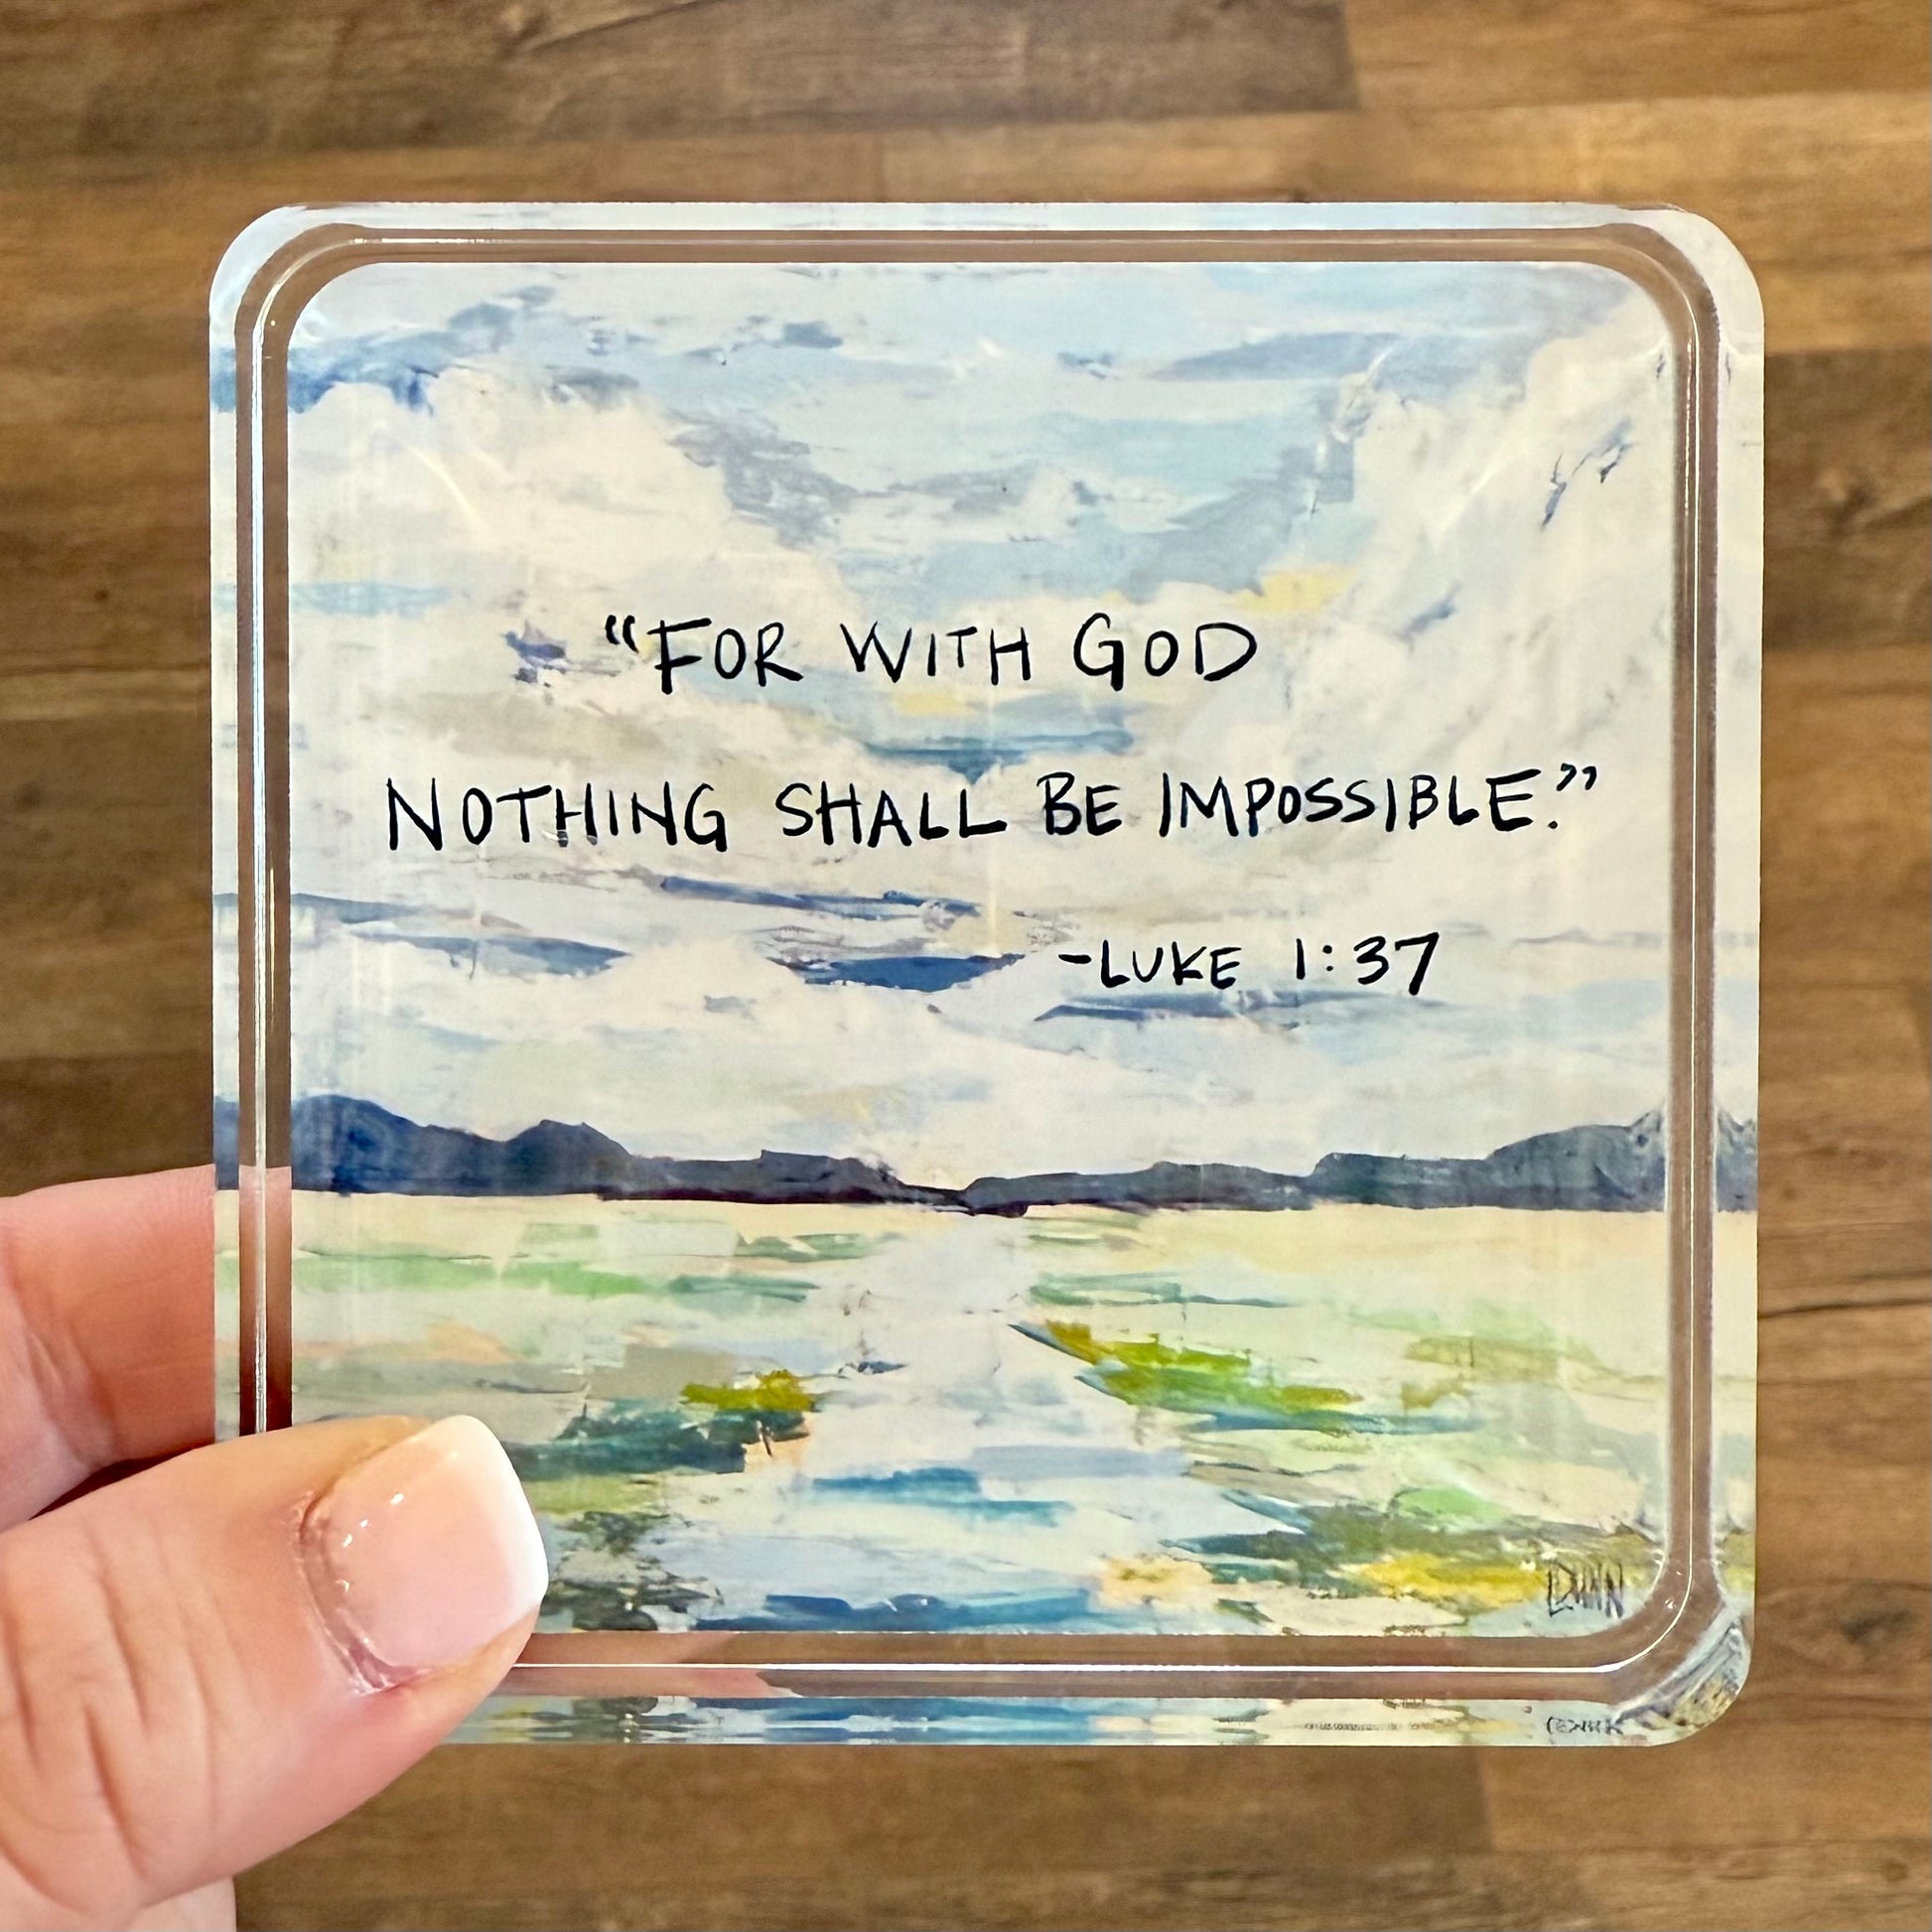 “FOR WITH GOD
NOTHING SHALL BE IMPOSSIBLE.”
-LUKE 1:37
LDUNN